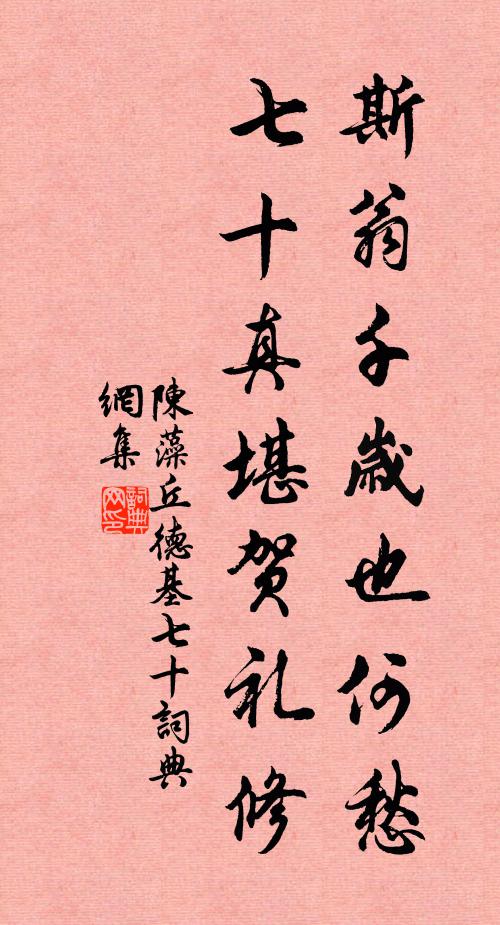 斯翁千歲也何愁
七十真堪贺礼修
陳藻丘德基七十詞典
網集
詞典
网印